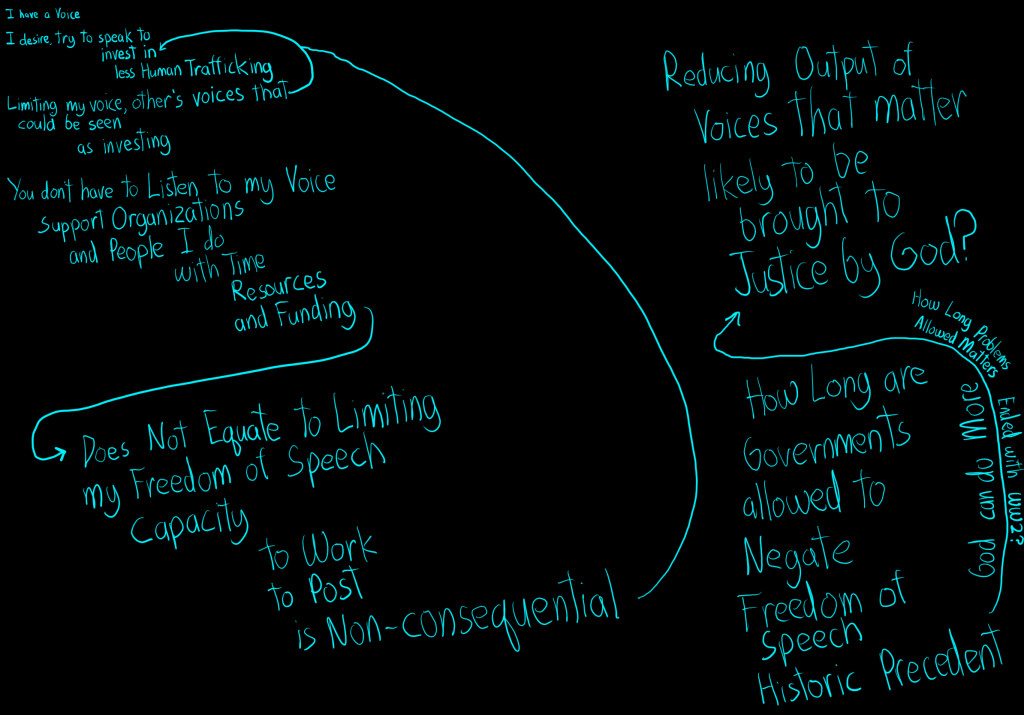 I have a Voice
I desire, try to speak to
invest in
less Human Trafficking
Limiting my voice, other's voices that
could be seen
as investing
You don't have to Listen to my Voice
Support Organizations
and People I do
with Time
Resources
and Funding
Does Not Equate to Limiting
my Freedom of Speech
Capacity
to Work
to Post
is Non-consequential
Reducing Output of
Voices that matter
likely to be
brought to
Justice by God?
How Long Problems
Allowed Matters
Ended with WW2?
God can do More
How Long are
Governments
allowed to
Negate
Freedom of
Speech
Historic Precedent